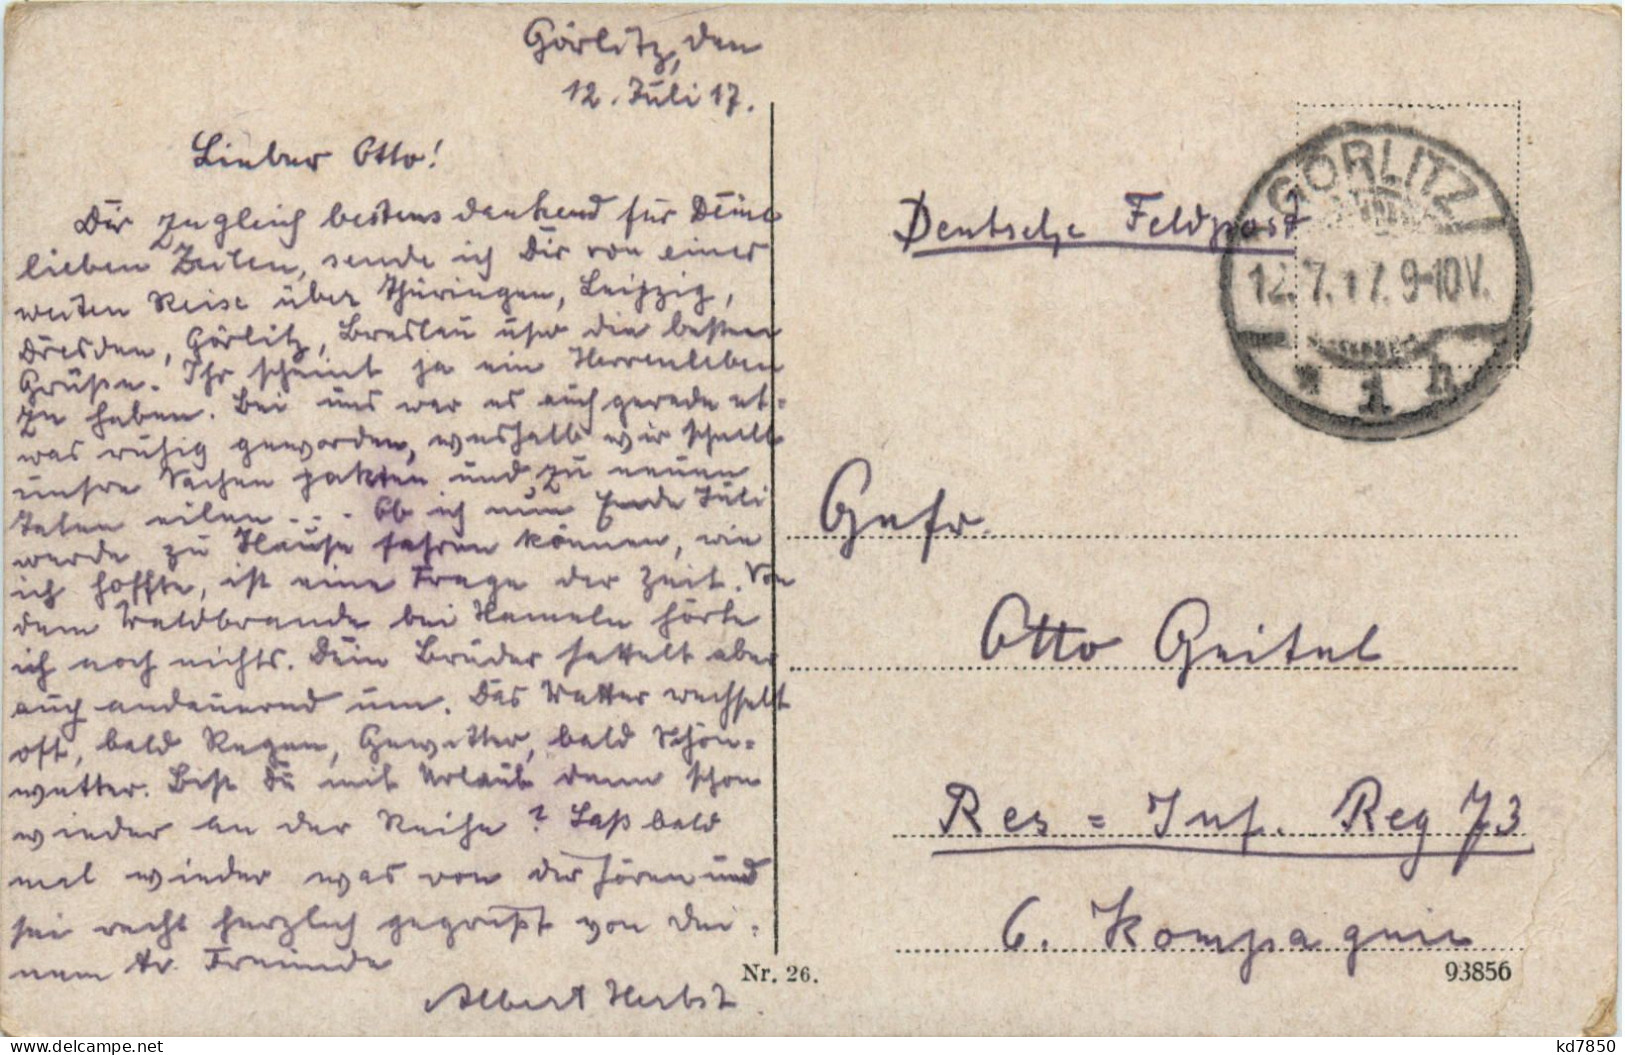 Görlitz, den
12. Juli 17.
Lieber Otto!
Dir zugleich bestens dankend für Deine
lieben Zeilen, sende ich Dir von einer
weiten Reise über Thüringen, Leipzig,
Dresden, Görlitz, Breslau usw die besten
Grüße. Ihr scheint ja ein Herrenleben
zu haben. Bei uns war es auch gerade et-
was ruhig geworden, weshalb wir schnell
unsre Sachen pakten und zu neuen
Taten eilen . . . Ob ich nun Ende Juli
werde zu Hause fahren können, wie
ich hoffte, ist eine Frage der Zeit. Von
dem Waldbrande bei Hameln hörte
ich noch nichts. Dein Bruder sattelt aber
auch andauernd um. Das Wetter wechselt
oft, bald Regen, Gewitter, bald Schön-
wetter. Bist Du mit Urlaub denn schon
wieder an der Reihe? Laß bald
mal wieder was von dir hören und
sei recht herzlich gegrüßt von Dei-
nem tr. Freunde
Albert Herbst
Deutsche Feldpost
GÖRLITZ
12.7.17. 9-10V.
* 1 n
Gefr.
Otto Geitel
Res = Inf. Reg 73
6. Kompagnie
Nr. 26.
93856
kd7850